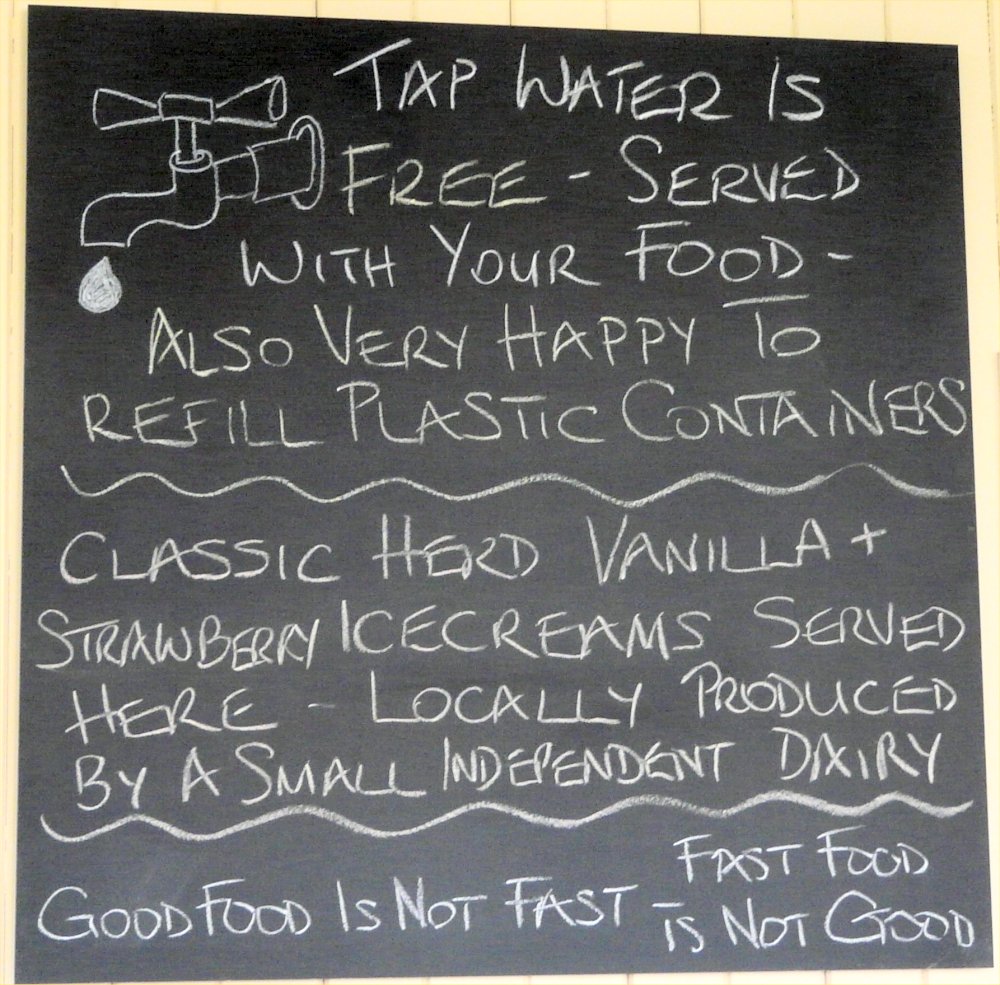 TAP WATER IS
FREE - SERVED
WITH YOUR FOOD -
ALSO VERY HAPPY TO
REFILL PLASTIC CONTAINERS
CLASSIC HERD VANILLA +
STRAWBERRY ICECREAMS SERVED
HERE - LOCALLY PRODUCED
BY A SMALL INDEPENDENT DAIRY
GOOD FOOD IS NOT FAST
FAST FOOD
IS NOT GOOD